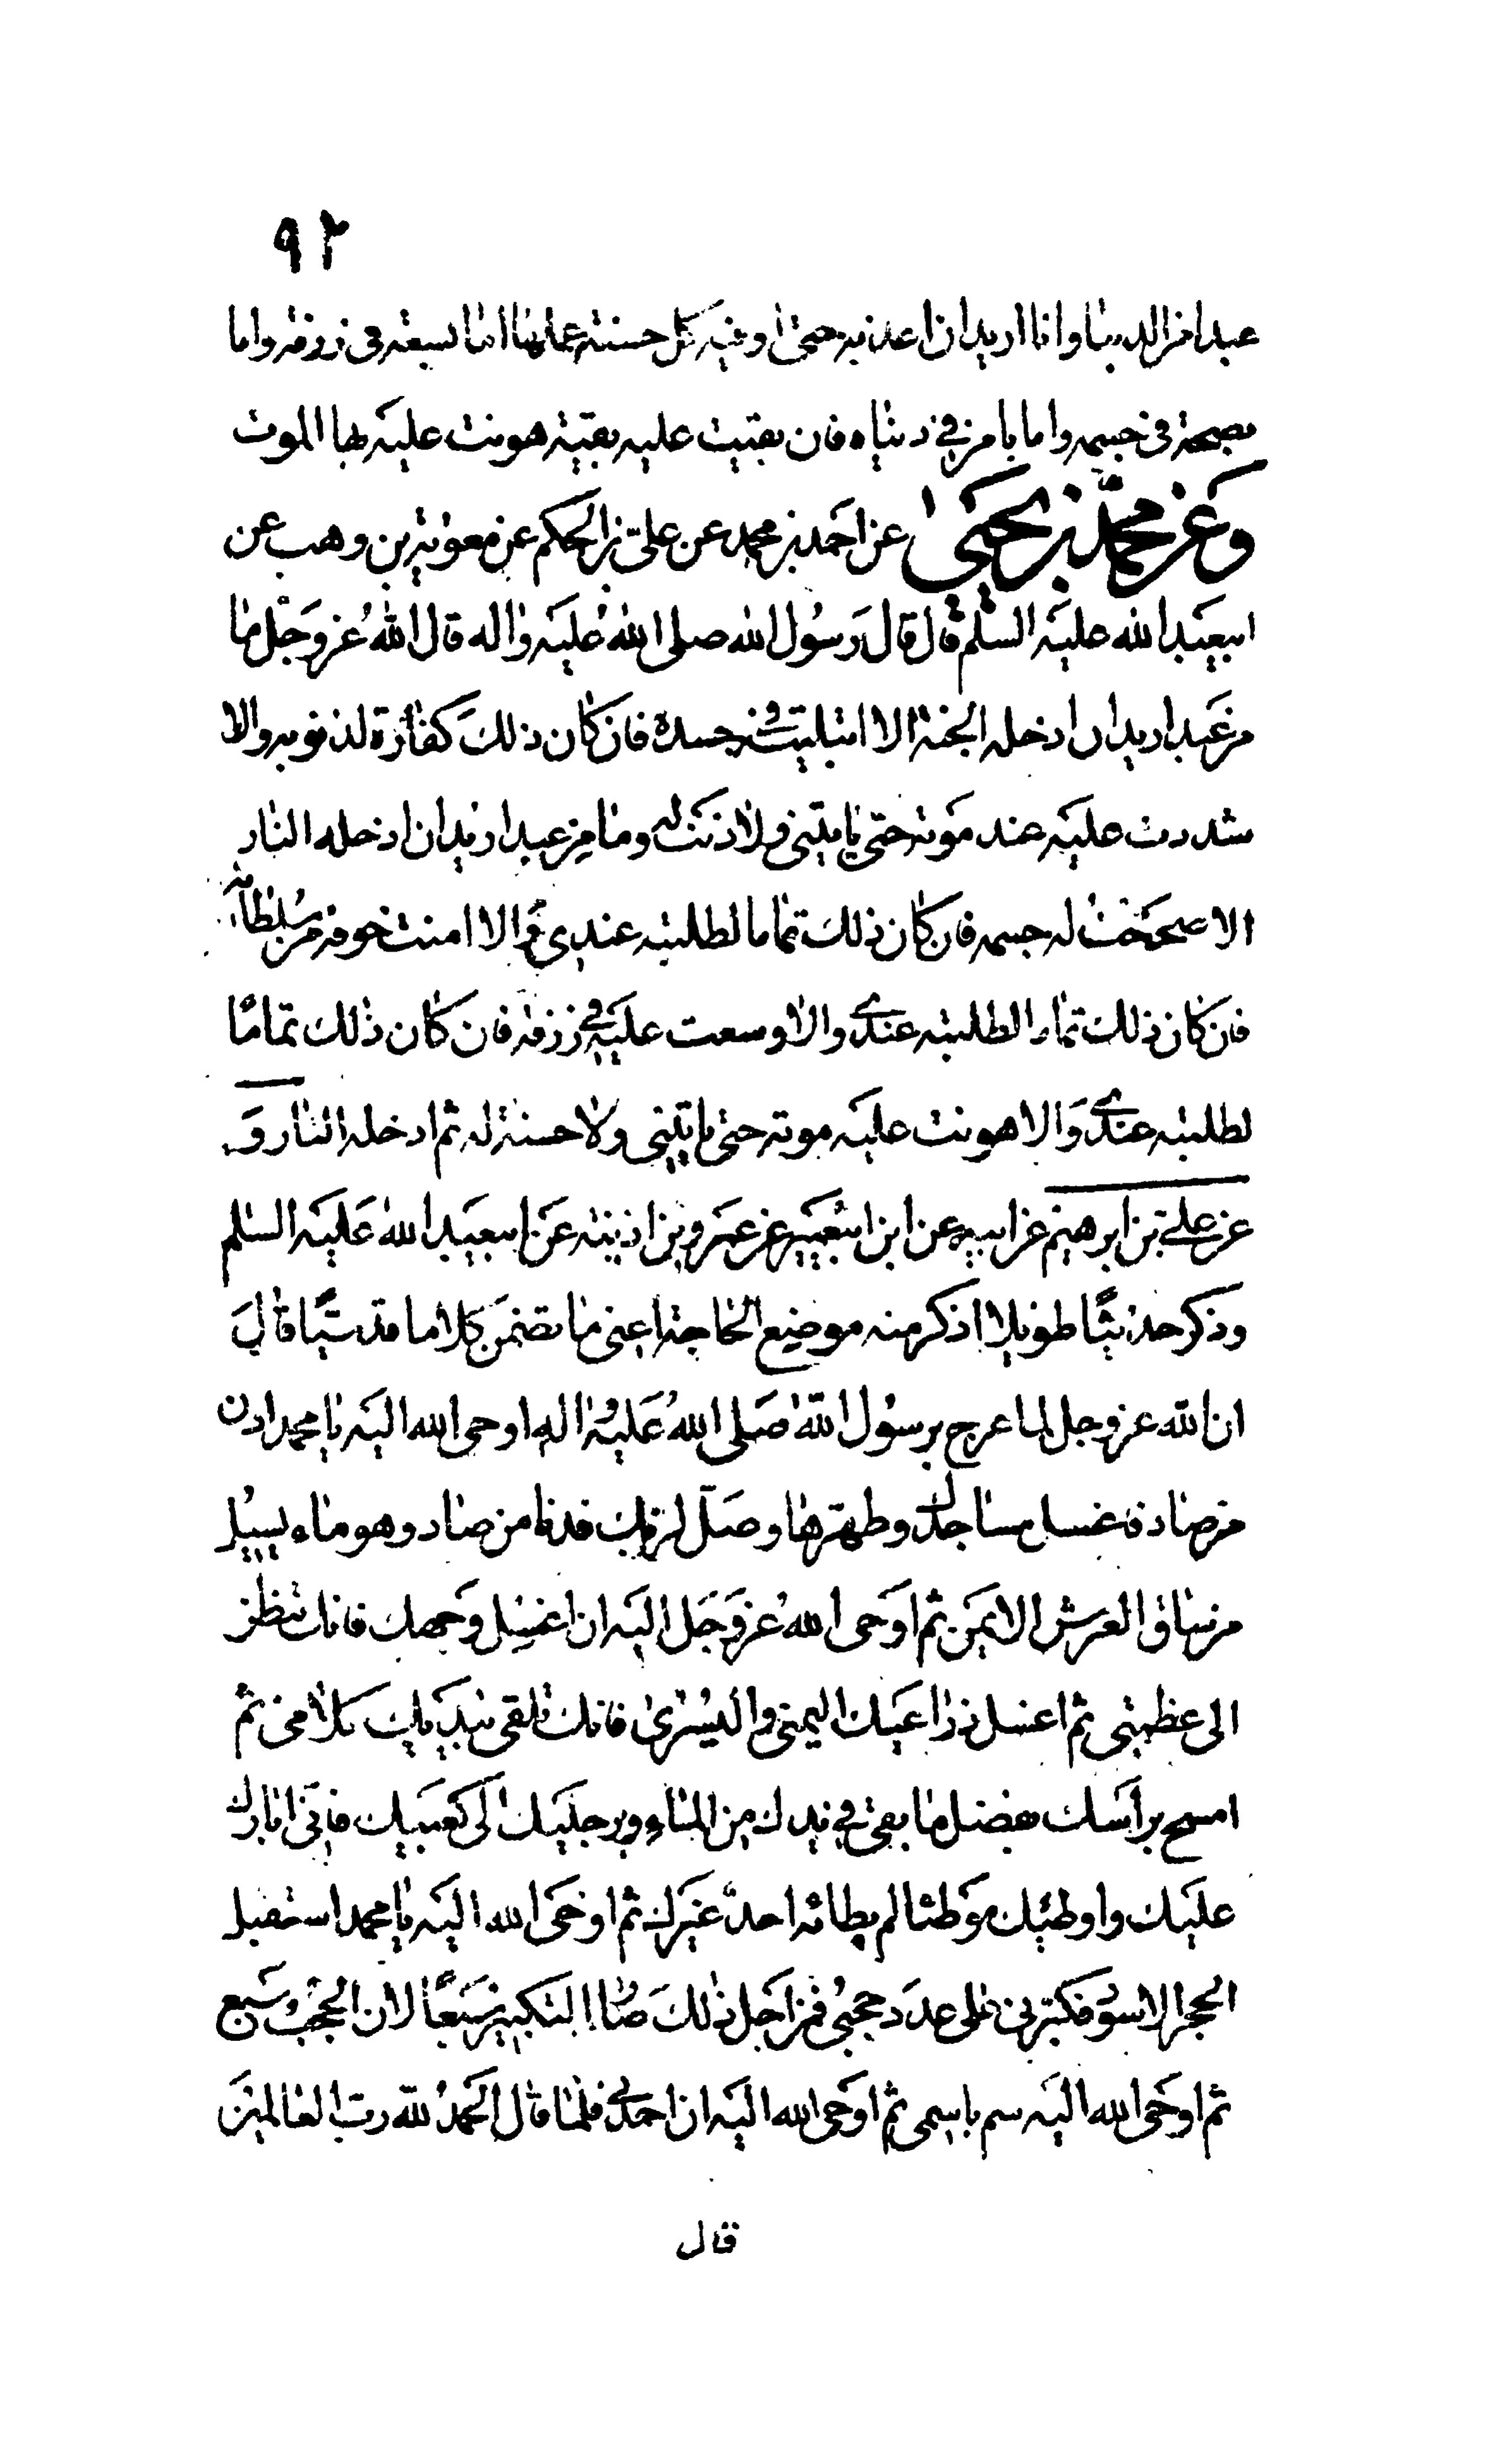 ٩٢
عبدا من الدنيا وانا اريد ان اعذبه حتى اوفيه كل حسنة عملها اما بسعة فى رزقه واما
بصحة فى جسمه واما بامن في دنياه فان بقيت عليه بقية هونت عليه بها الموت
وَعَن محمّد بن يحيىٰ عن احمد بن محمد عن علىّ بن الحكم عن معوٰية بن وهب عن
ابيعبد الله عليه السلٰم قال قال رَسُول الله صلى الله عليه واٰله قال اللهُ عز وَجَل ما
من عَبد اريد ان ادخله الجنة الا ابتليته في جسده فان كان ذلكَ كفارة لذنوبه والا
شددت عليه عند موته حتى ياتينى ولا ذنب له وما من عبد اريد ان ادخله النار
الا صححت له جسمه فان كان ذلك تماما لطلبته عندى والا امنت خوفه من سلطانه
فان كان ذلك تماما لطلبته عندى والا وسعت عليه في رزقه فان كان ذلك تمامًا
لطلبته عندى وَالا هونت عليه موته حتى ياتينى ولا حسنة له ثم ادخله النار وَ
عن على بن ابرهيم عن ابيه عن ابن ابيعمير عن عمر بن اذينه عَن ابيعبد الله عَليه السلٰم
وذكر حديثًا طويلا اذكر منه موضع الحاجة اعنى ما تضمن كلاما قدسيًا قالَ
ان الله عز وجل لما عرج برسول اللهٰ صَلى اللهُ عَليه واٰله اوحى الله اليه يا محمد ادن
من صاد فاغسل مساجدك وطهرها وصَلّ لربك فدنا من صاد وهو ماء يسيل
من ساق العرش الايمن ثم اوحى اللهُ عز وَجَل اليه ان اغسل وَجهك فانك تنظر
الى عظمتى ثم اغسل ذراعيك اليمنى واليُسرىٰ فانك تلقى بيديك كلامى ثم
امسح براسك بفضل ما بقى في يدك من الماء ورجليك الى كعبيك فانى ابارك
عليك واوطئك موطئا لم يطائه احدٌ غيرك ثم اوحَى الله اليه يا محمد استقبل
الحجر الاسود فكبرنى على عدد حجبى فمن اجل ذٰلكَ صار التكبير سَبعًا لان الحجب سَبع
ثم اوحَى الله اليه سم باسمى ثم اوحى الله اليه ان احمدنى فلما قال الحمدُ للّه ربّ العالمينَ
قال